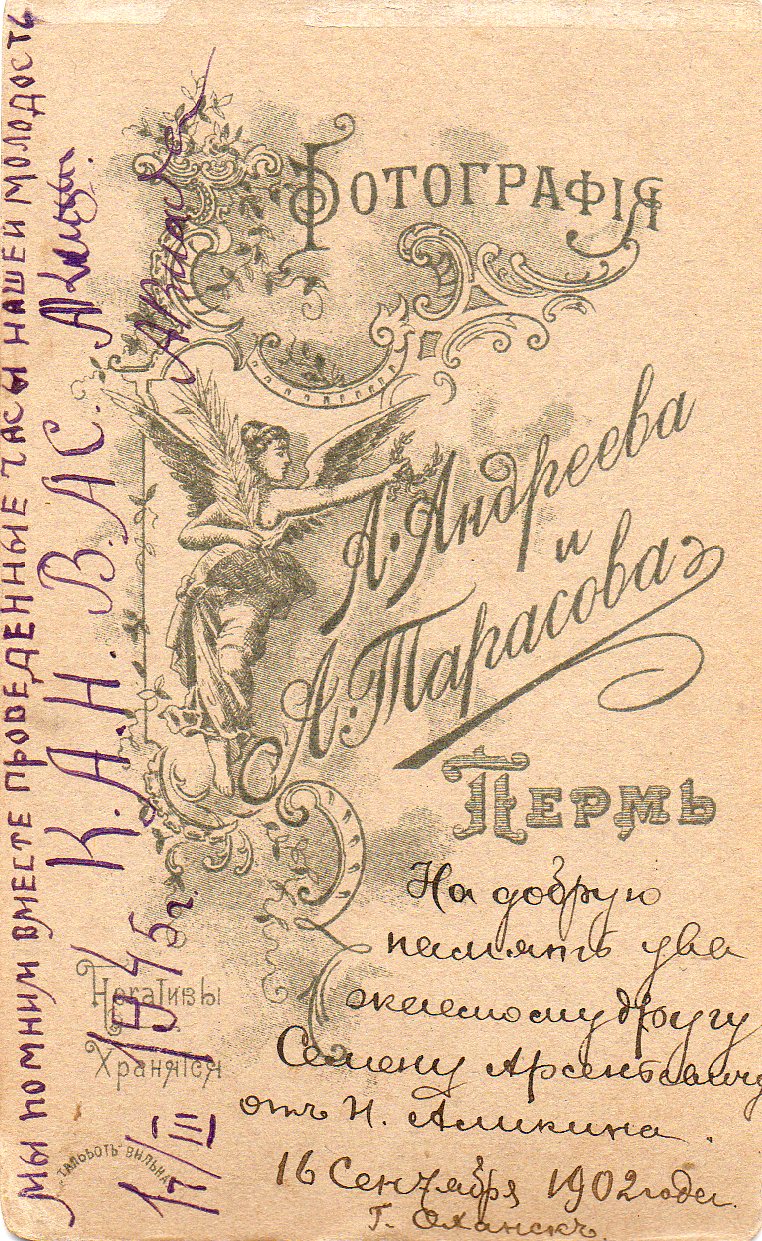 Фотографія
А. Андреева
и
А. Тарасова
Пермь
Негативы
Хранятся
На добрую
память ува
жаемому другу
Семену Арсентьевичу
отъ Н. Аликина.
16 Сентября 1902 года.
Г. Оханскъ.
МЫ ПОМНИМ ВМЕСТЕ ПРОВЕДЕННЫЕ ЧАСЫ НАШЕЙ МОЛОДОСТЬ
К. А. Н. В. АС.
17/III 1945 г.
ТАЛЬБОТЪ ВИЛЬНА